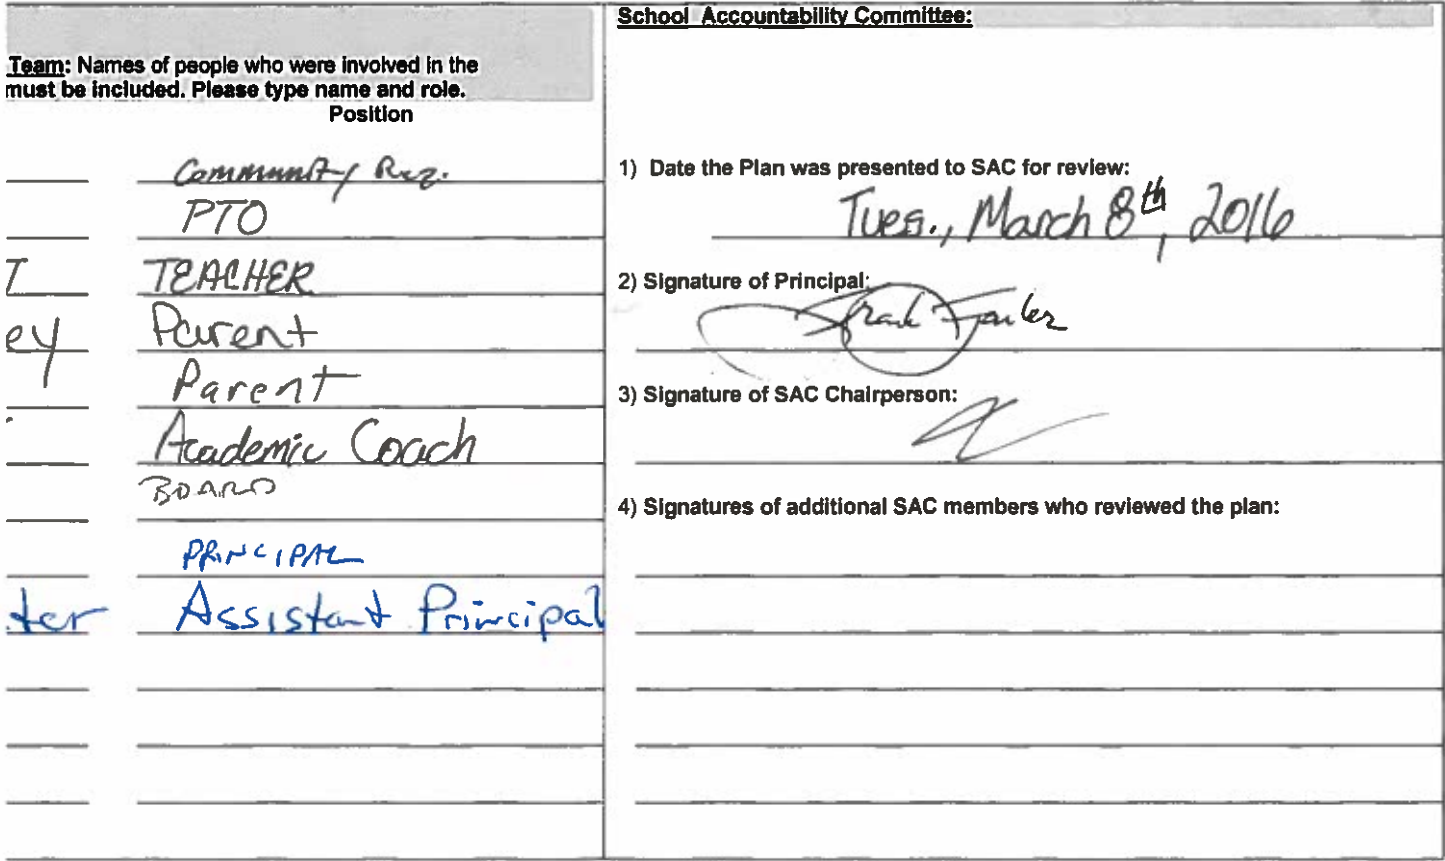 Team: Names of people who were involved in the
must be included. Please type name and role.
Position
Community Rep.
PTO
T TEACHER
ey Parent
Parent
Academic Coach
BOARD
PRINCIPAL
ter Assistant Principal
School Accountability Committee:
1) Date the Plan was presented to SAC for review:
Tues., March 8th, 2016
2) Signature of Principal:
Frank Fowler
3) Signature of SAC Chairperson:
4) Signatures of additional SAC members who reviewed the plan: